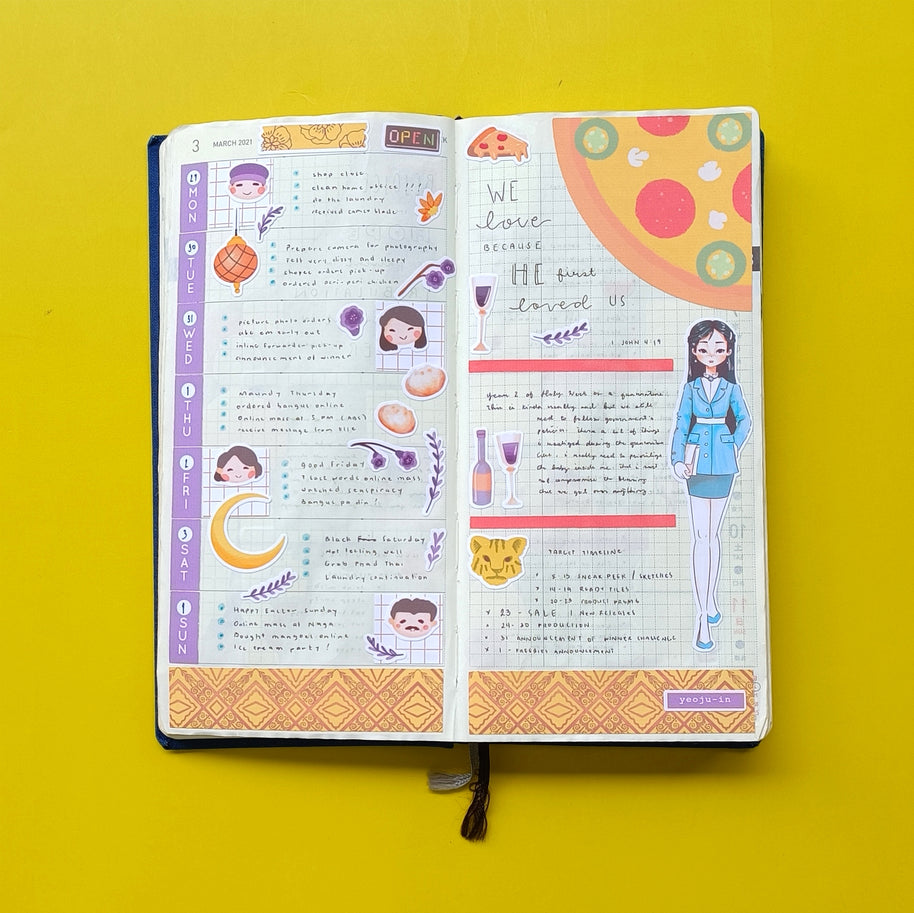 3 MARCH 2021
OPEN
29 MON
shop close
clean home office !!!
do the laundry
received camer blade
30 TUE
Prepare camera for photography
Felt very dizzy and sleepy
shopee orders pick-up
ordered peri-peri chicken
31 WED
picture photo orders
ate em early out
inline forwarder pick-up
announcement of winner
1 THU
Maundy Thursday
ordered bangus online
Online mass at 5 PM
receive message from elle
2 FRI
good Friday
7 last words online mass
watched seaspiracy
Bangus pa din!
3 SAT
Black Saturday
Not feeling well
Grab Phad Thai
Laundry continuation
4 SUN
Happy Easter Sunday
Online mass at Naga
Bought mangoes online
Ice cream party!
WE
love
BECAUSE
HE first
loved US
1 JOHN 4:19
Year 2 of Holy Week in a quarantine.
This is kinda really sad but we still
need to follow government's
the baby inside me. that i will
not compromise the blessing
that we got over anything.
TARGET TIMELINE
x 8-13 SNEAK PEEK / SKETCHES
x 14-19 READY FILES
x 20-23 PRODUCT PROMO
x 23 - SALE | New Releases
x 24-30 PRODUCTION
x 31 ANNOUNCEMENT OF WINNER CHALLENGE
x 1 - FREEBIES ANNOUNCEMENT
yeoju-in